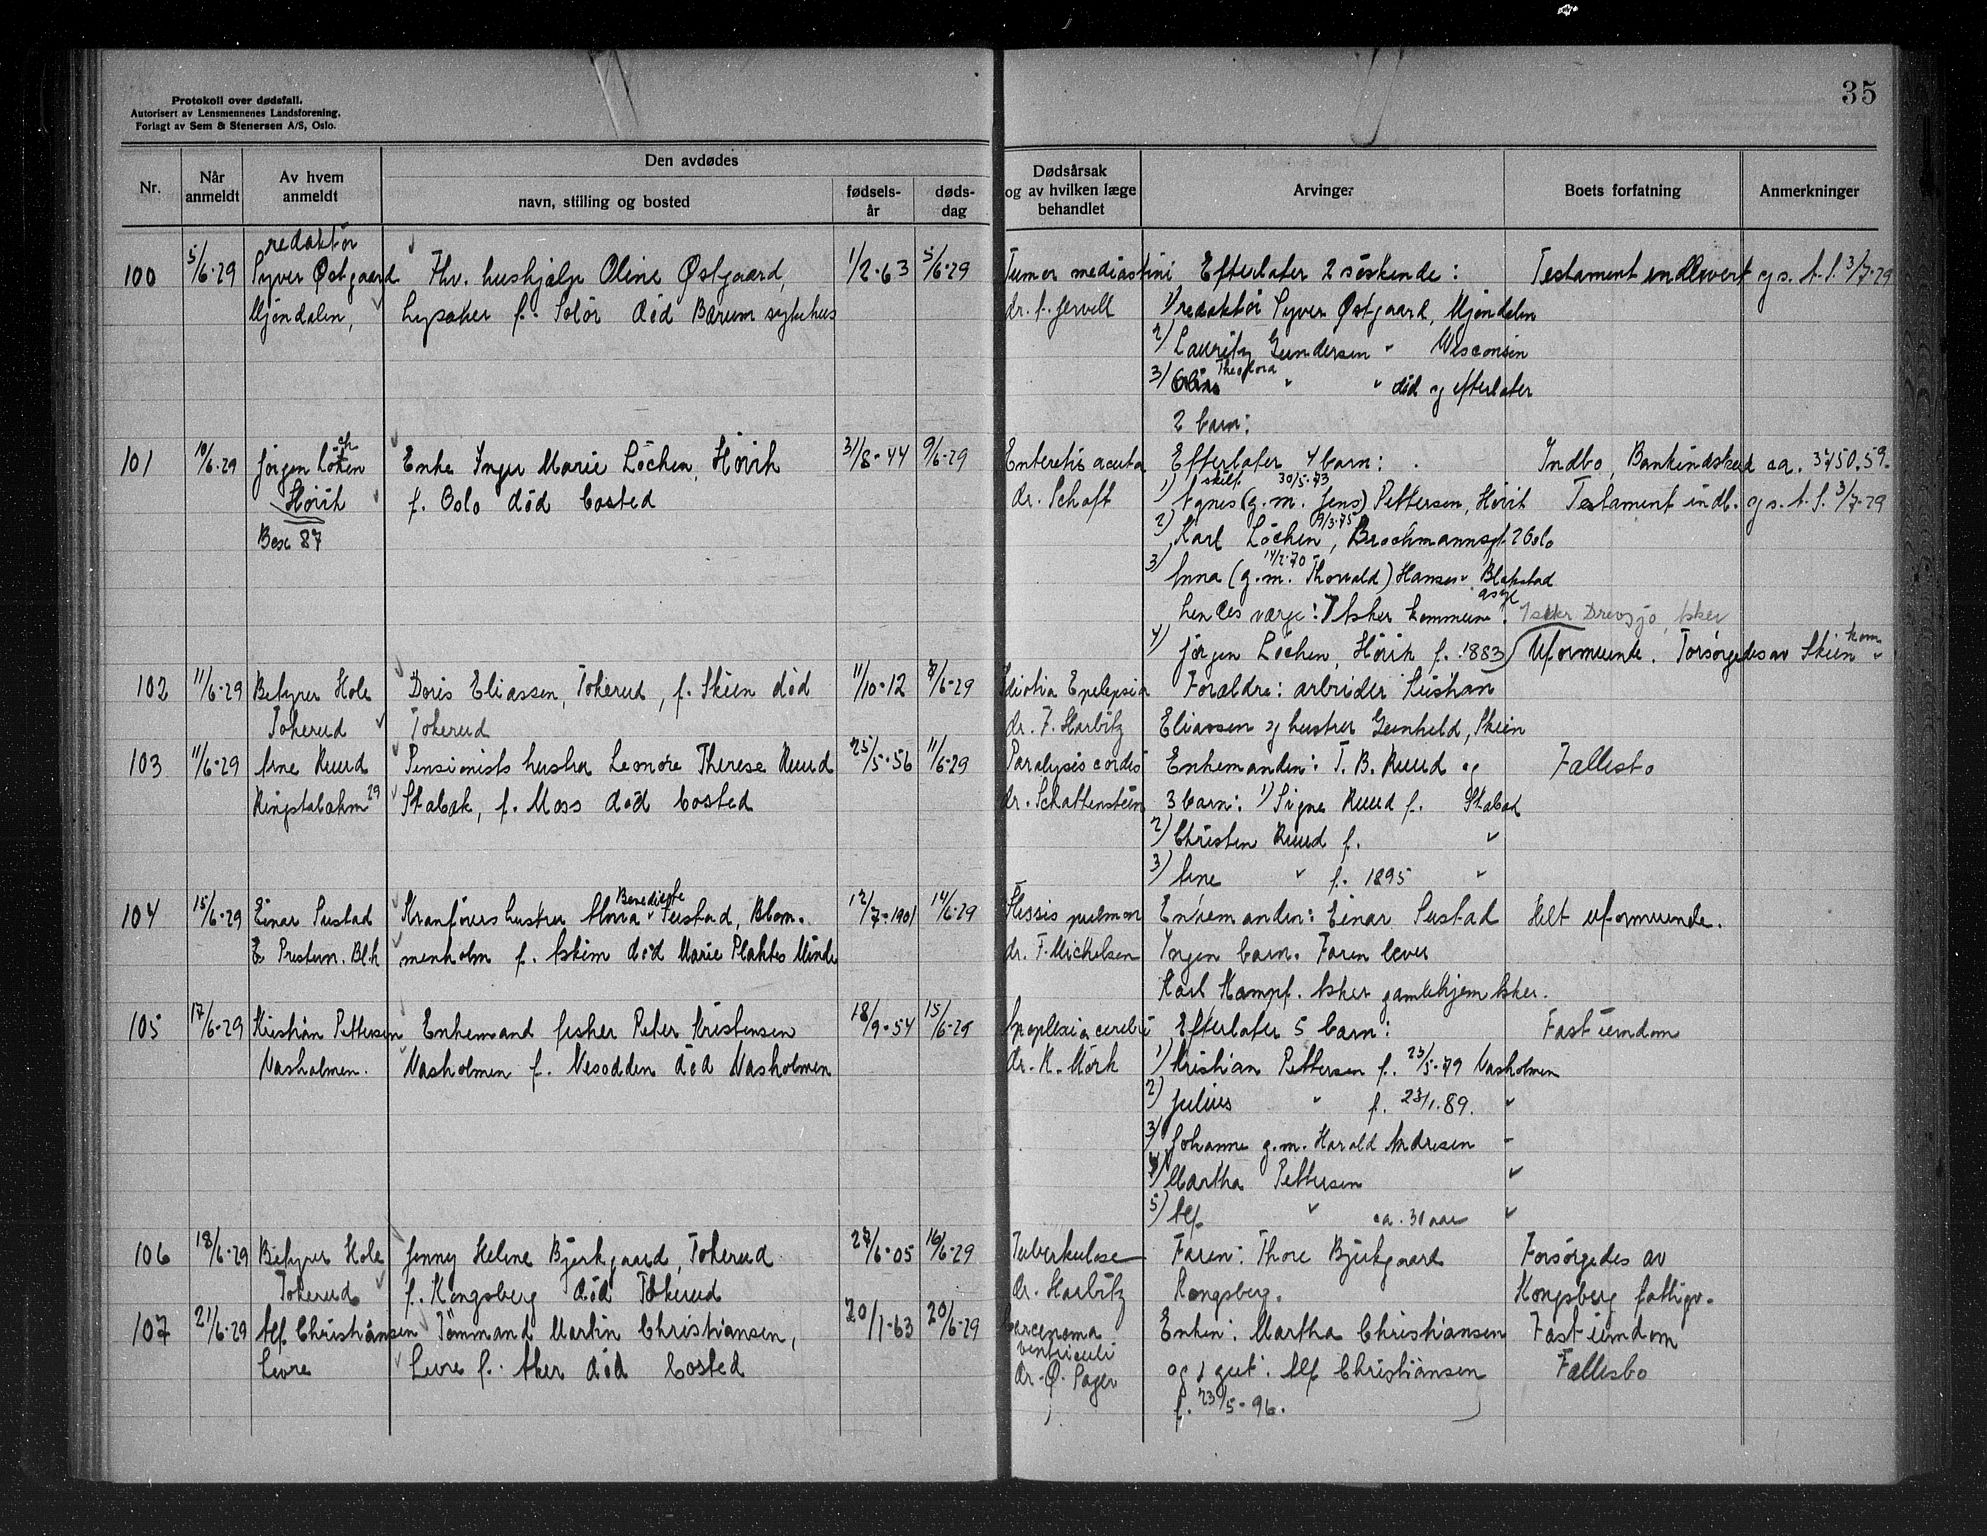 35
Protokoll over dødsfall.
Autorisert av Lensmennenes Landsforening.
Forlagt av Sem & Stenersen A/S, Oslo.
Nr.
Når anmeldt
Av hvem anmeldt
Den avdødes
navn, stilling og bosted
fødsels-år
døds-dag
Dødsårsak og av hvilken læge behandlet
Arvinger
Boets forfatning
Anmerkninger
redaktør
100 5/6-29 Syver Østgaard Fhv. hushjelp Oline Østgaard, 1/2-63 5/6-29 Tumor mediastini Efterlater 2 søskende: Testament indlevert og s. t. s. 3/7-29
Mjøndalen, Lysaker f. Solør død Bærum sykehus dr. f. Jervell 1) redaktør Syver Østgaard, Mjøndalen
2) Lauritz Gundersen " Wisconsin
3) Theodora " " død og efterlater
2 barn:
101 10/6-29 Jørgen Løchen Enke Inger Marie Løchen, Høvik 31/8-44 9/6-29 Enteretis acuta Efterlater 4 barn: Indbo, Bankindskud ca. 3750.59.
Høvik f. Oslo død bosted dr. Schaft 1) Agnes (skilt g.m. Jens) 30/5-73 Pettersen, Høvik Testament indl. og s. t. s. 3/7-29
Box 87 2) Karl Løchen, 9/3-75 Brochmannsgt. 2 Oslo
3) Anna (g.m. Thorvald) 14/2-70 Hansen Blakstad asyl
hendes værge: Asker kommune. Drevsjø, Asker
4) Jørgen Løchen, Høvik f. 1883
102 11/6-29 Bestyrer Hole Doris Eliassen, Tokerud, f. Skien død 11/10-12 7/6-29 Idiotia Epelepsia Forældre: arbeider Kristian Uformuende. Forsørgedes av Skien kom.
Tokerud Tokerud dr. F. Harbitz Eliassen og hustru Gunhild, Skien
103 11/6-29 Arne Ruud Pensionists hustru Leonore Therese Ruud 25/5-56 11/6-29 Paralysis cordis Enkemanden: T. B. Ruud og Fællesbo
Ringstabækm 29 Stabæk, f. Moss død bosted dr. Schattenstein 3 barn: 1) Signe Ruud f. Stabæk
2) Christen Ruud f. "
3) Arne " f. 1895 "
104 15/6-29 Einar Sustad Kranførers hustru Anna Benedicte Sustad, Blom- 12/7-1901 14/6-29 Ftissis pulmon Enkemanden: Einar Sustad Helt uformuende.
E Prestrun. Blh menholm f. Askim død Marie Plahtes Minde dr. F. Michelsen Ingen barn. Faren lever
Karl Kampf. Asker gamlehjem Asker.
105 17/6-29 Kristian Pettersen Enkemand fisker Peter Kristensen 18/9-54 15/6-29 Apoplexia cerebri Efterlater 5 barn: Fast eiendom
Nasholmen. Nasholmen f. Nesodden død Nasholmen dr. K. Mørk 1) Kristian Pettersen f. 23/5-79 Nasholmen
2) Julius " f. 23/1.89. "
3) Johanne g.m. Harald Andresen "
4) Martha Pettersen "
5) Alf " ca. 30 aar "
106 18/6-29 Bestyrer Hole Jenny Heline Bjerkgaard, Tokerud 27/6-05 16/6-29 Tuberkulose Faren: Thore Bjerkgaard Forsørgedes av
Tokerud f. Kongsberg død Tokerud dr. Harbitz Kongsberg. Kongsberg fattigv.
107 21/6-29 Alf Christiansen Tømmand Martin Christiansen, 20/1-63 20/6-29 Carcenoma Enken: Martha Christiansen Fast eiendom
Levre Levre f. Aker død bosted ventriculi dr. Ø. Sager og 1 gut: Alf Christiansen Fællesbo
f. 23/5-96.